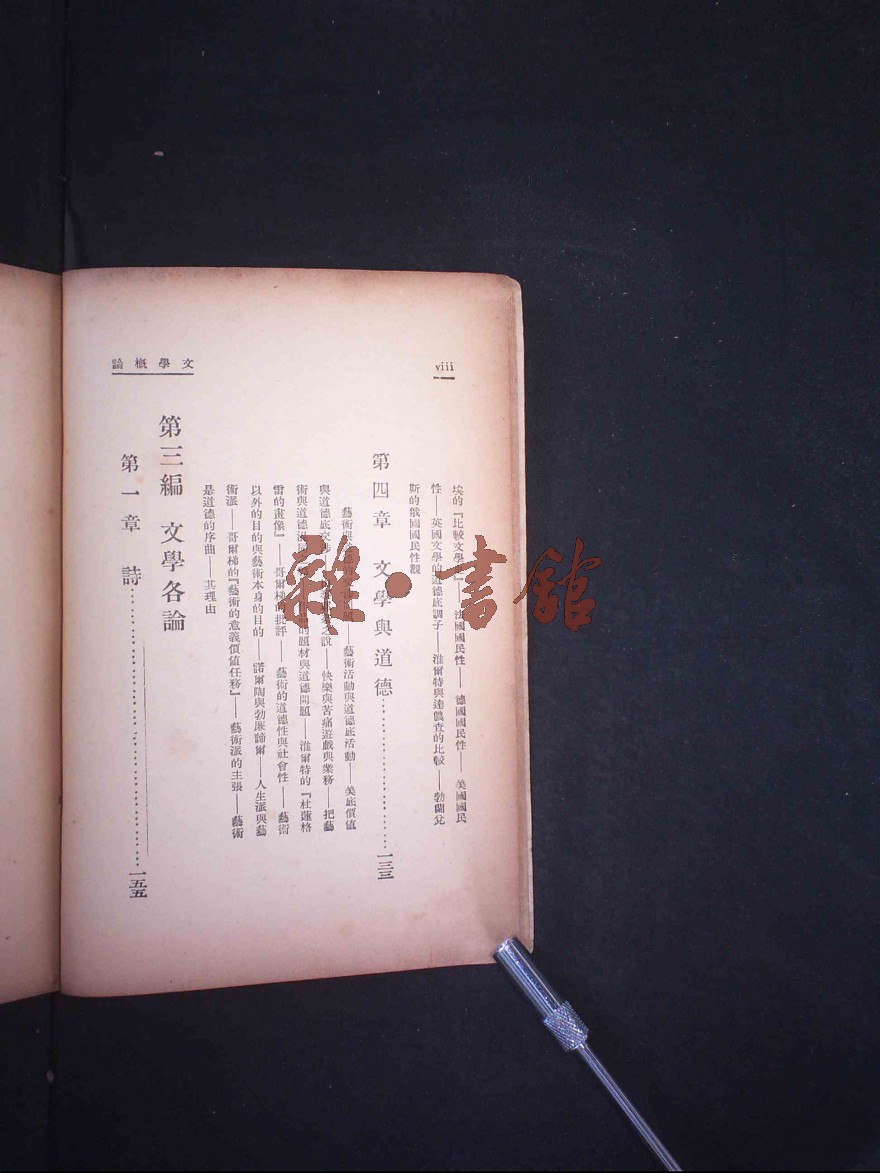 文學概論
viii
埃的『比較文學
法國國民性——德國國民性——美國國民
性——英國文學的道德底調子——淮爾特與達
的比較——勃蘭兌
斯的俄國國民性觀
第四章 文學與道德……一三三
藝術與
——藝術活動與道德底活動——美底價值
與道德底交涉
說——快樂與苦痛遊戲與業務——把藝
術與道德混
的題材與道德問題——淮爾特的『杜蓮格
雷的畫像』——哥爾梯的批評——藝術的道德性與社會性——藝術
以外的目的與藝術本身的目的——諾爾陶與勃廉諦爾——人生派與藝
術派——哥爾梯的『藝術的意義價值任務』——藝術派的主張——藝術
是道德的序曲——其理由
第三編 文學各論
第一章 詩……一五五
雜·書館